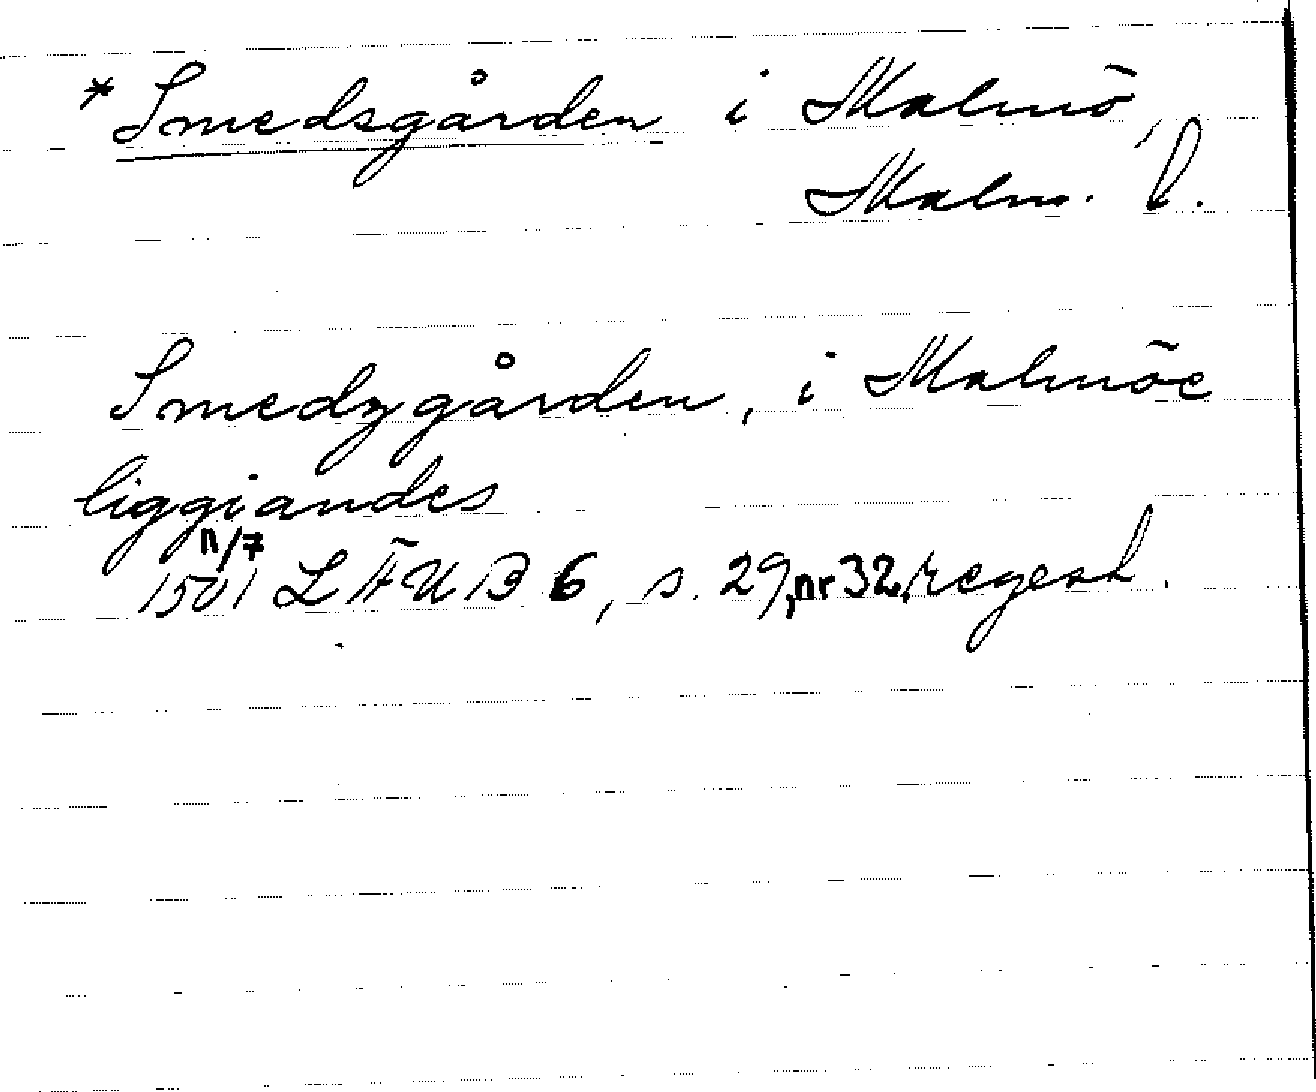 * Smedsgården i Malmö,
Malm. l.
Smedzgården, i Malmöe
liggiandes
11/7
1501 LÄUB 6, s. 29, nr 32, regest.